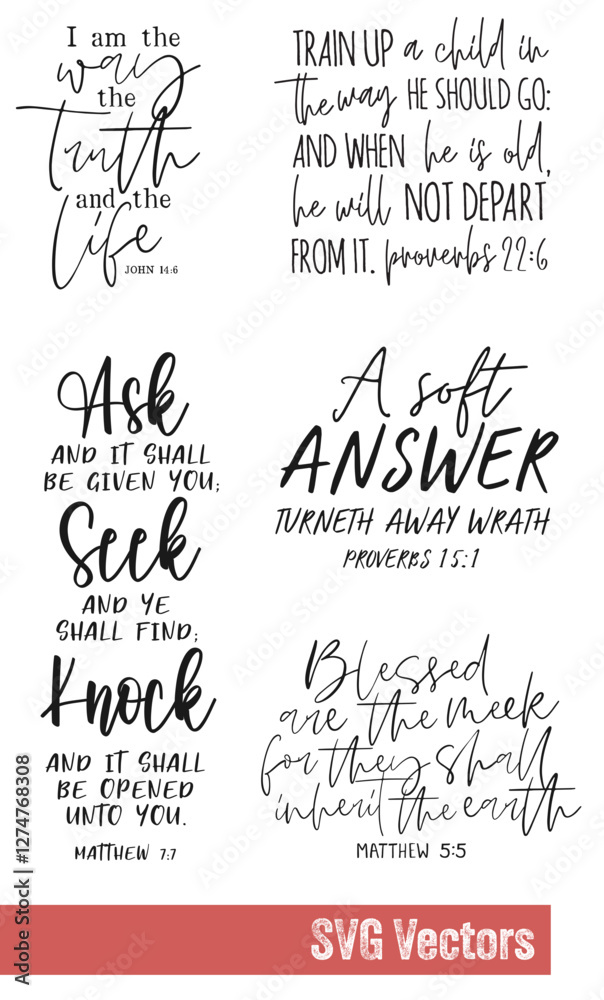 I am the
way
the
truth
and the
life
JOHN 14:6
TRAIN UP a child in
the way HE SHOULD GO:
AND WHEN he is old,
he will NOT DEPART
FROM IT. proverbs 22:6
Ask
AND IT SHALL
BE GIVEN YOU;
Seek
AND YE
SHALL FIND;
Knock
AND IT SHALL
BE OPENED
UNTO YOU.
MATTHEW 7:7
A soft
ANSWER
TURNETH AWAY WRATH
PROVERBS 15:1
Blessed
are the meek
for they shall
inherit the earth
MATTHEW 5:5
SVG Vectors
Adobe Stock | #1274768308